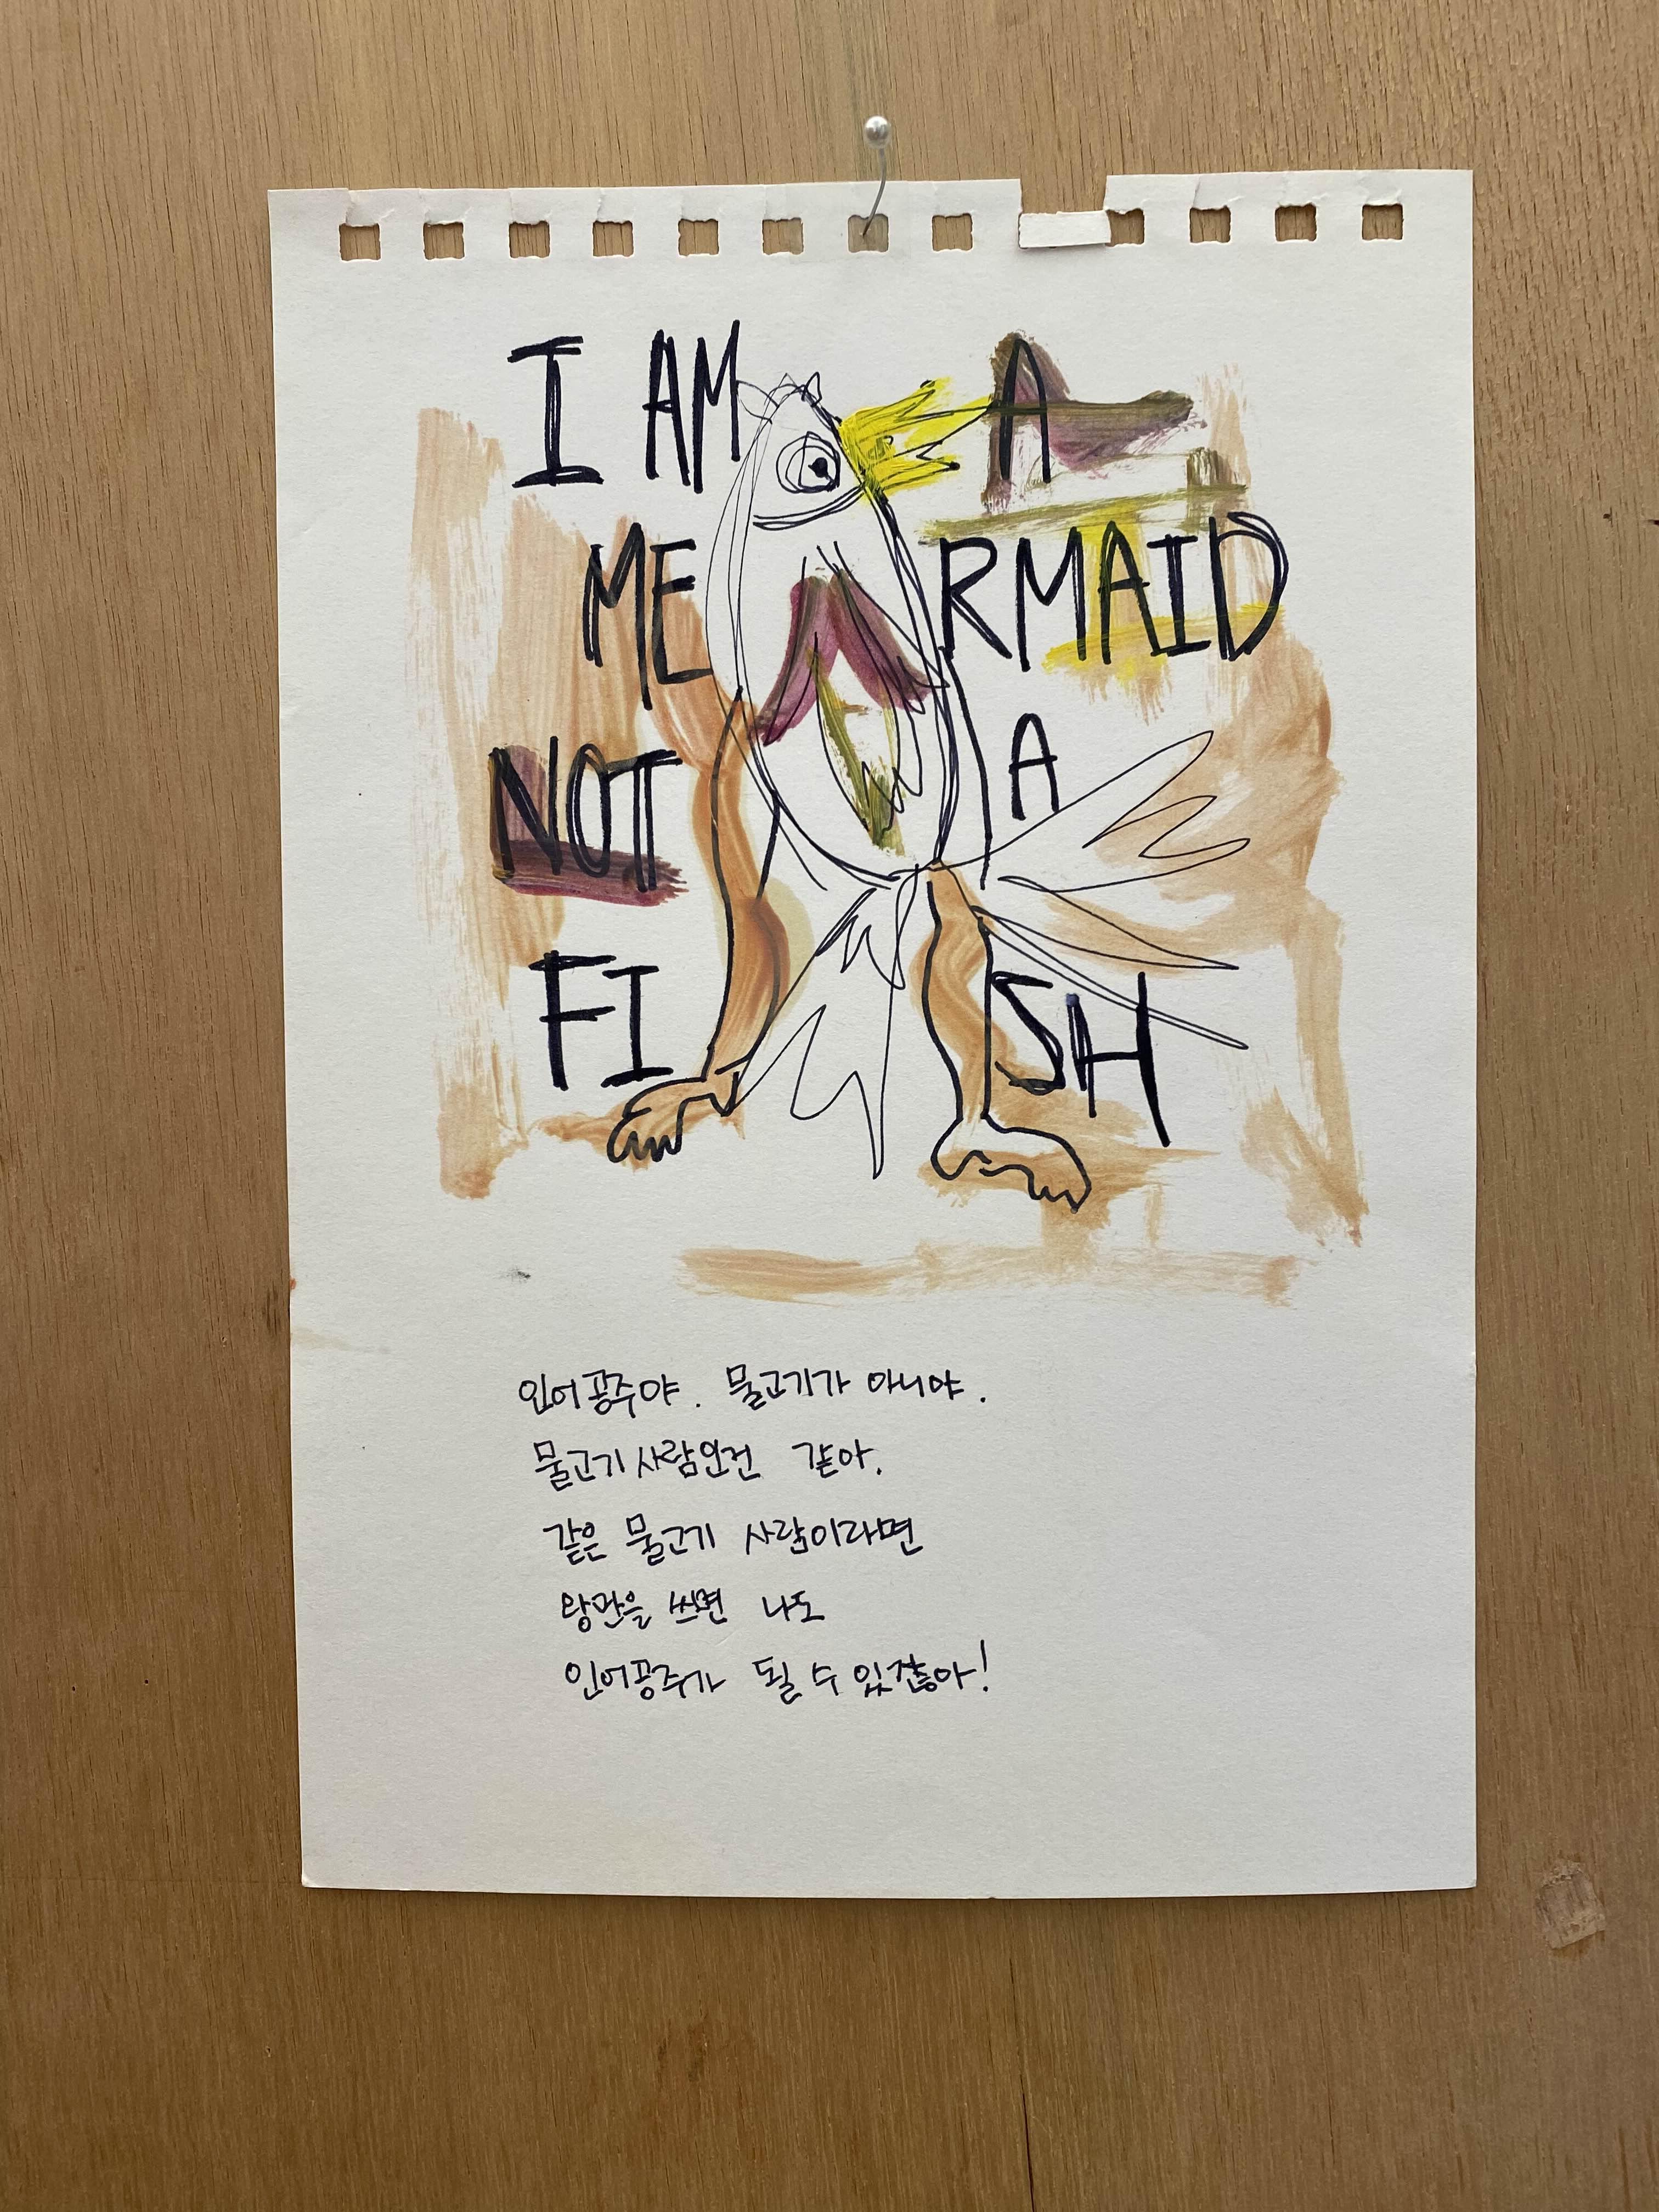 I AM A
MERMAID
NOT A
FISH
인어공주야. 물고기가 아니야.
물고기 사람인건 같아.
같은 물고기 사람이라면
왕관을 쓰면 나도
인어공주가 될 수 있잖아!